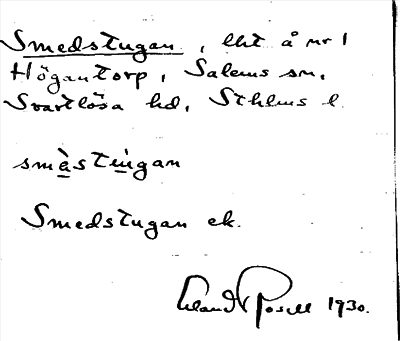 Smedstugan, lht å nr 1
Högantorp, Salems sn,
Svartlösa hd, Sthlms l.
smàstùgan
Smedstugan ek.
Erland Rosell 1930.